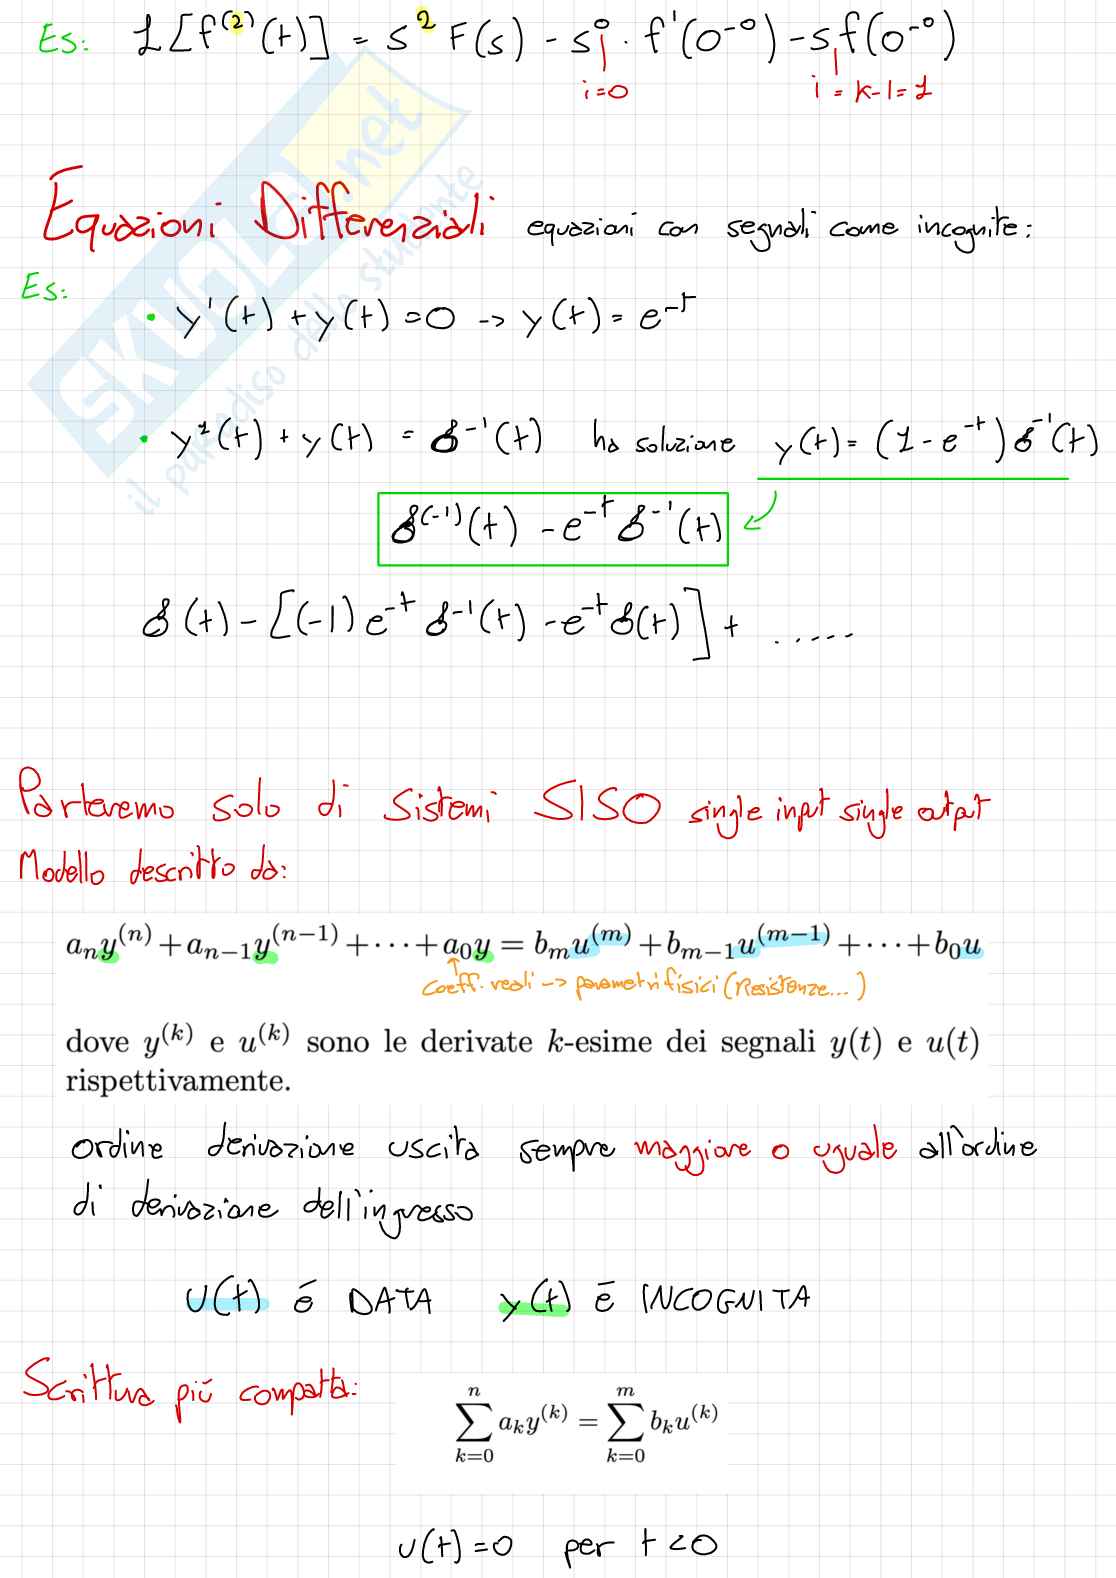 Es: L[f⁽²⁾(t)] = s² F(s) - s⁰ · f'(0⁻⁰) - s¹ f(0⁻⁰)
i=0 i = k-1 = 1
Equazioni Differenziali equazioni con segnali come incognite:
Es:
• y'(t) + y(t) = 0 -> y(t) = e⁻ᵗ
• y¹(t) + y(t) = δ⁻¹(t) ha soluzione y(t) = (1 - e⁻ᵗ) δ⁻¹(t)
δ⁽⁻¹⁾(t) - e⁻ᵗ δ⁻¹(t)
δ(t) - [(-1) e⁻ᵗ δ⁻¹(t) - e⁻ᵗ δ(t)] + .....
Parleremo solo di Sistemi SISO single input single output
Modello descritto da:
aₙy⁽ⁿ⁾ + aₙ₋₁y⁽ⁿ⁻¹⁾ + ··· + a₀y = bₘu⁽ᵐ⁾ + bₘ₋₁u⁽ᵐ⁻¹⁾ + ··· + b₀u
coeff. reali -> parametri fisici (Resistenze...)
dove y⁽ᵏ⁾ e u⁽ᵏ⁾ sono le derivate k-esime dei segnali y(t) e u(t)
rispettivamente.
ordine derivazione uscita sempre maggiore o uguale all'ordine
di derivazione dell'ingresso
U(t) è DATA y(t) è INCOGNITA
Scrittura più compatta:
∑ₖ₌₀ⁿ aₖy⁽ᵏ⁾ = ∑ₖ₌₀ᵐ bₖu⁽ᵏ⁾
u(t) = 0 per t < 0
SKUOLA.net
il paradiso dello studente